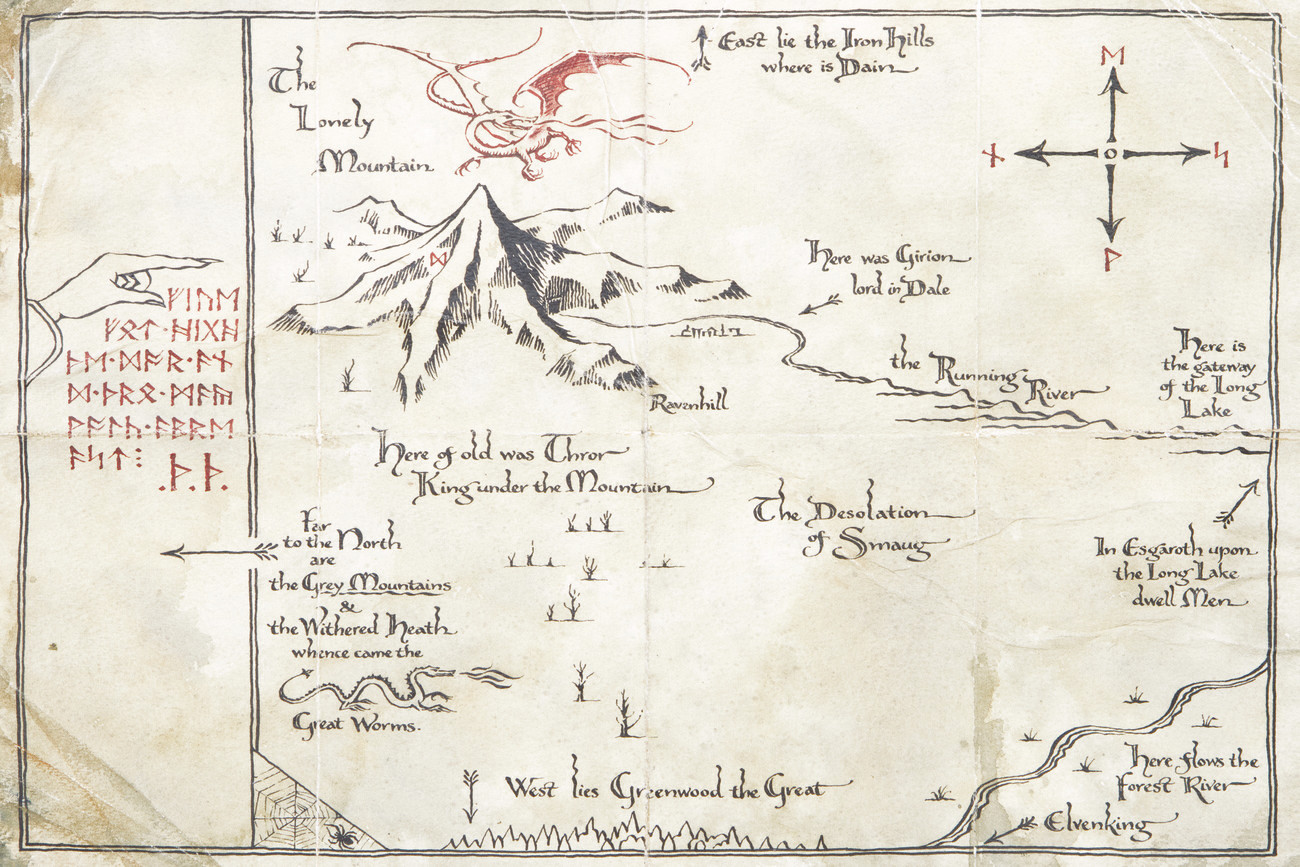 The
Lonely
Mountain
East lie the Iron Hills
where is Dain
ᛖ
ᚾ
ᛋ
ᚹ
ᛞ
Here was Girion
lord in Dale
ᚠᛁᚢᛖ
ᚠᚩᛏ·ᚻᛁᚷᚻ
ᚦᛖ·ᛞᚩᚱ·ᚪᚾ
ᛞ·ᚦᚱᛟ·ᛗᚪᚣ
ᚹᚪᛚᚳ·ᚪᛒᚱᛖ
ᚪᛋᛏ⁝
.ᚦ.ᚦ.
the Running
River
Here is
the gateway
of the Long
Lake
Ravenhill
Here of old was Thror
King under the Mountain
The Desolation
of Smaug
Far
to the North
are
the Grey Mountains
&
the Withered Heath
whence came the
Great Worms.
In Esgaroth upon
the Long Lake
dwell Men
West lies Greenwood the Great
Here flows the
Forest River
Elvenking